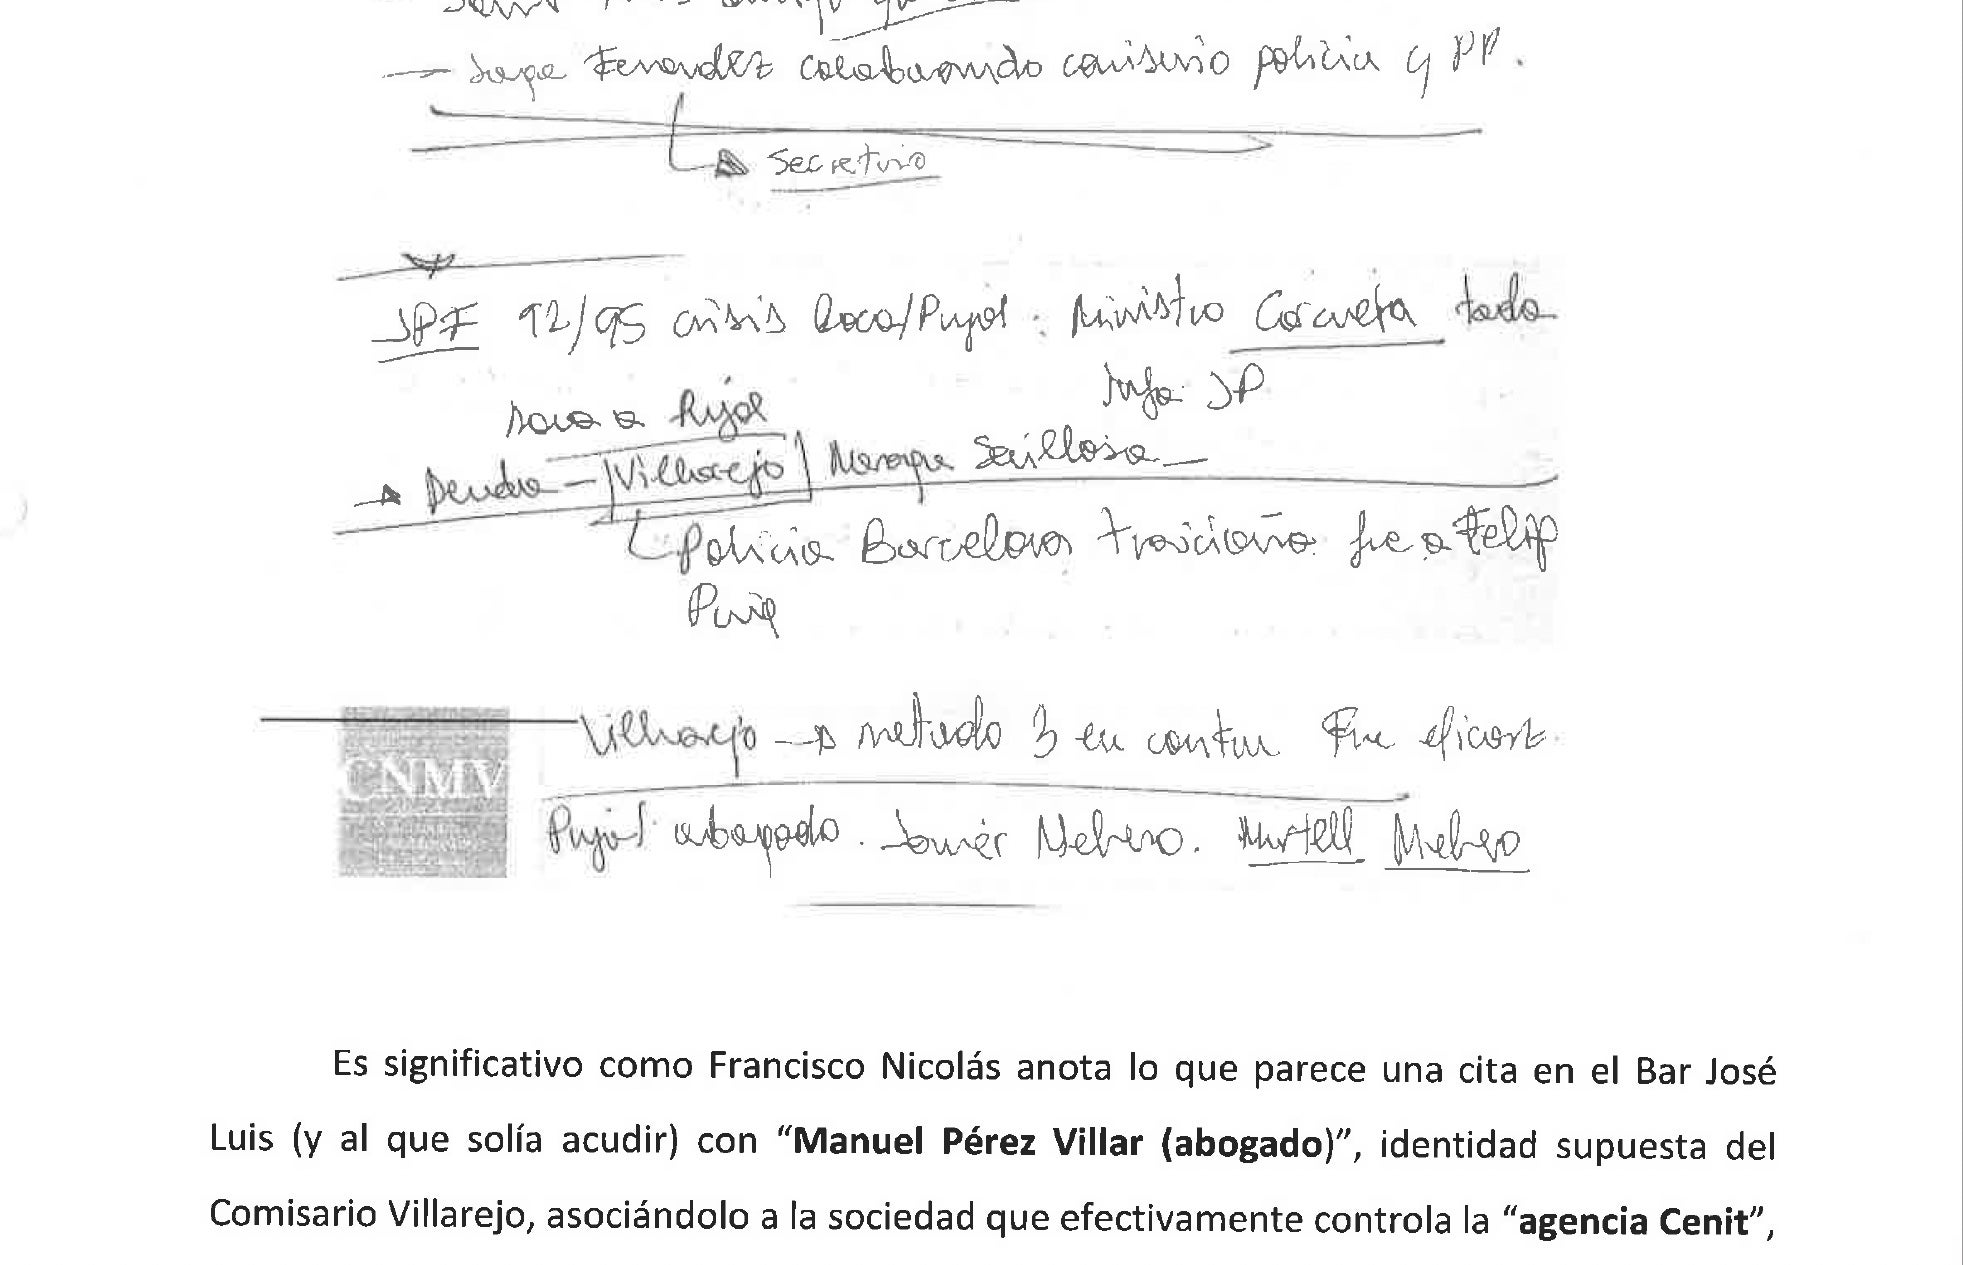 Fernandez colaborando comisario policia y PP.
Secretario
JPF 92/95 crisis Roca/Pujol: Ministro Corcuera toda
Info JP
a Pujol
Villarejo Sevillosa
Policia Barcelona traiciona fue a Felip
Puig
Villarejo → metodo 3 en contra
CNMV
Pujol abogado. Javier Nebrero. Martell Mebreo
Es significativo como Francisco Nicolás anota lo que parece una cita en el Bar José
Luis (y al que solía acudir) con “Manuel Pérez Villar (abogado)”, identidad supuesta del
Comisario Villarejo, asociándolo a la sociedad que efectivamente controla la “agencia Cenit”,